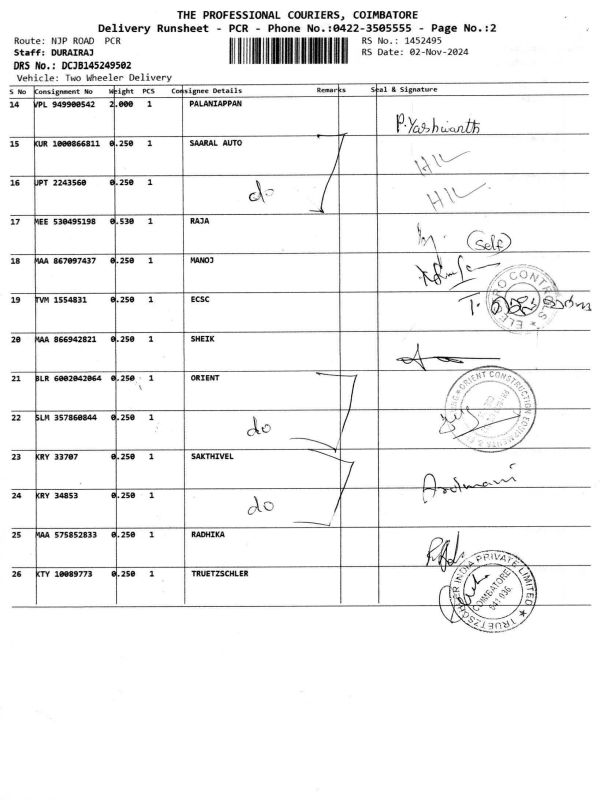 THE PROFESSIONAL COURIERS, COIMBATORE
Delivery Runsheet - PCR - Phone No.:0422-3505555 - Page No.:2
Route: NJP ROAD PCR RS No.: 1452495
Staff: DURAIRAJ RS Date: 02-Nov-2024
DRS No.: DCJB145249502
Vehicle: Two Wheeler Delivery
S No Consignment No Weight PCS Consignee Details Remarks Seal & Signature
14 VPL 949900542 2.000 1 PALANIAPPAN
P. Yashwanth
15 KUR 1000866811 0.250 1 SAARAL AUTO
16 JPT 2243560 0.250 1 do
17 MEE 530495198 0.530 1 RAJA
(Self)
18 MAA 867097437 0.250 1 MANOJ
19 TVM 1554831 0.250 1 ECSC
ELECTRO CONTROLS
20 MAA 866942821 0.250 1 SHEIK
21 BLR 6002042064 0.250 1 ORIENT
ORIENT CONSTRUCTION EQUIPMENTS &
22 SLM 357860844 0.250 1 do
23 KRY 33707 0.250 1 SAKTHIVEL
24 KRY 34853 0.250 1 do
25 MAA 575852833 0.250 1 RADHIKA
26 KTY 10089773 0.250 1 TRUETZSCHLER
TRUETZSCHLER INDIA PRIVATE LIMITED
COIMBATORE
641 036